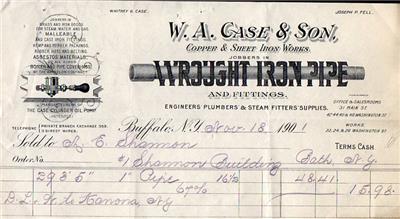 WHITNEY G. CASE.
JOSEPH P. FELL.
JOBBERS IN
BRASS AND IRON GOODS
FOR STEAM, WATER AND GAS.
MALLEABLE
AND CAST IRON FITTINGS,
HEMP AND RUBBER PACKINGS,
RUBBER HOSE AND BELTING.
ASBESTOS MATERIALS
BOILER AND PIPE COVERINGS
THE CASE CYLINDER OIL PUMP.
W. A. CASE & SON,
COPPER & SHEET IRON WORKS.
JOBBERS IN
WROUGHT IRON PIPE
AND FITTINGS.
ENGINEERS PLUMBERS & STEAM FITTERS' SUPPLIES.
OFFICE & SALESROOMS
31 MAIN ST
WORKS
22, 24 & 26 WASHINGTON ST
TELEPHONE PRIVATE BRANCH EXCHANGE 358.
3 DIRECT WIRES.
Buffalo, N.Y. Nov. 18 1901
Sold to A. E. Shannon TERMS CASH
Order No. #1 Shannon Building Bath N.Y.
293' 5" 1" Pipe 16½ 48.41
67% 15.98
D.L. & W. to Kanona, N.Y.